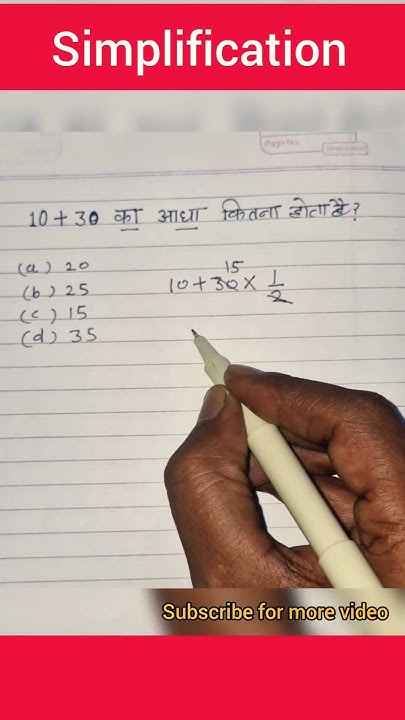 Simplification
Page No.
10 + 30 का आधा कितना होता है?
(a) 20
(b) 25
(c) 15
(d) 35
15
10 + 30 × 1/2
Subscribe for more video